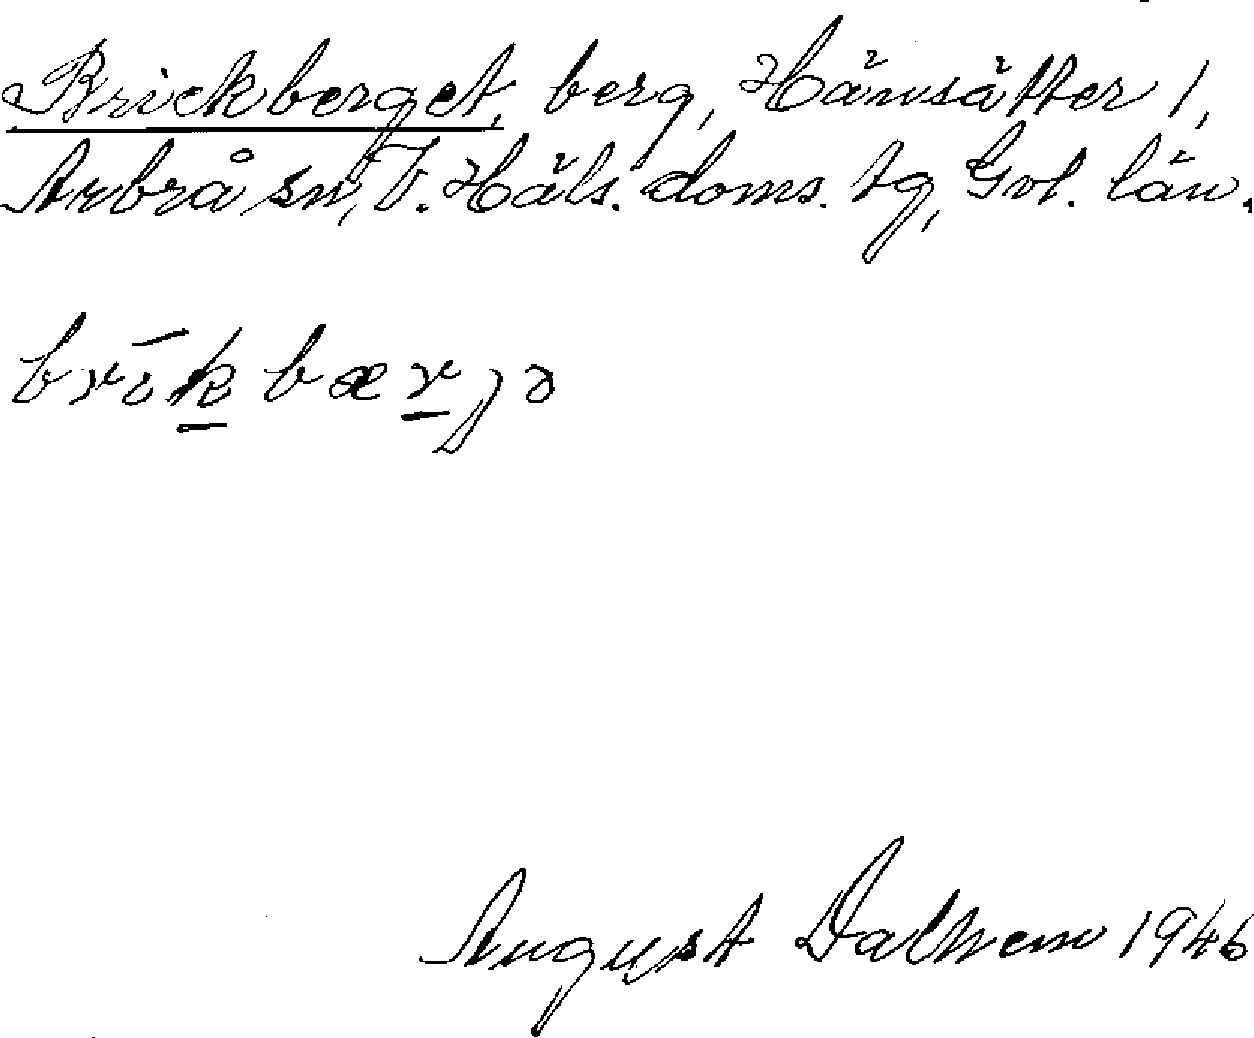 Brickberget, berg, Hämsätter 1,
Arbrå sn, V. Häls. doms. tg, Gvl. län.
brīkbærjə
August Dalhem 1946